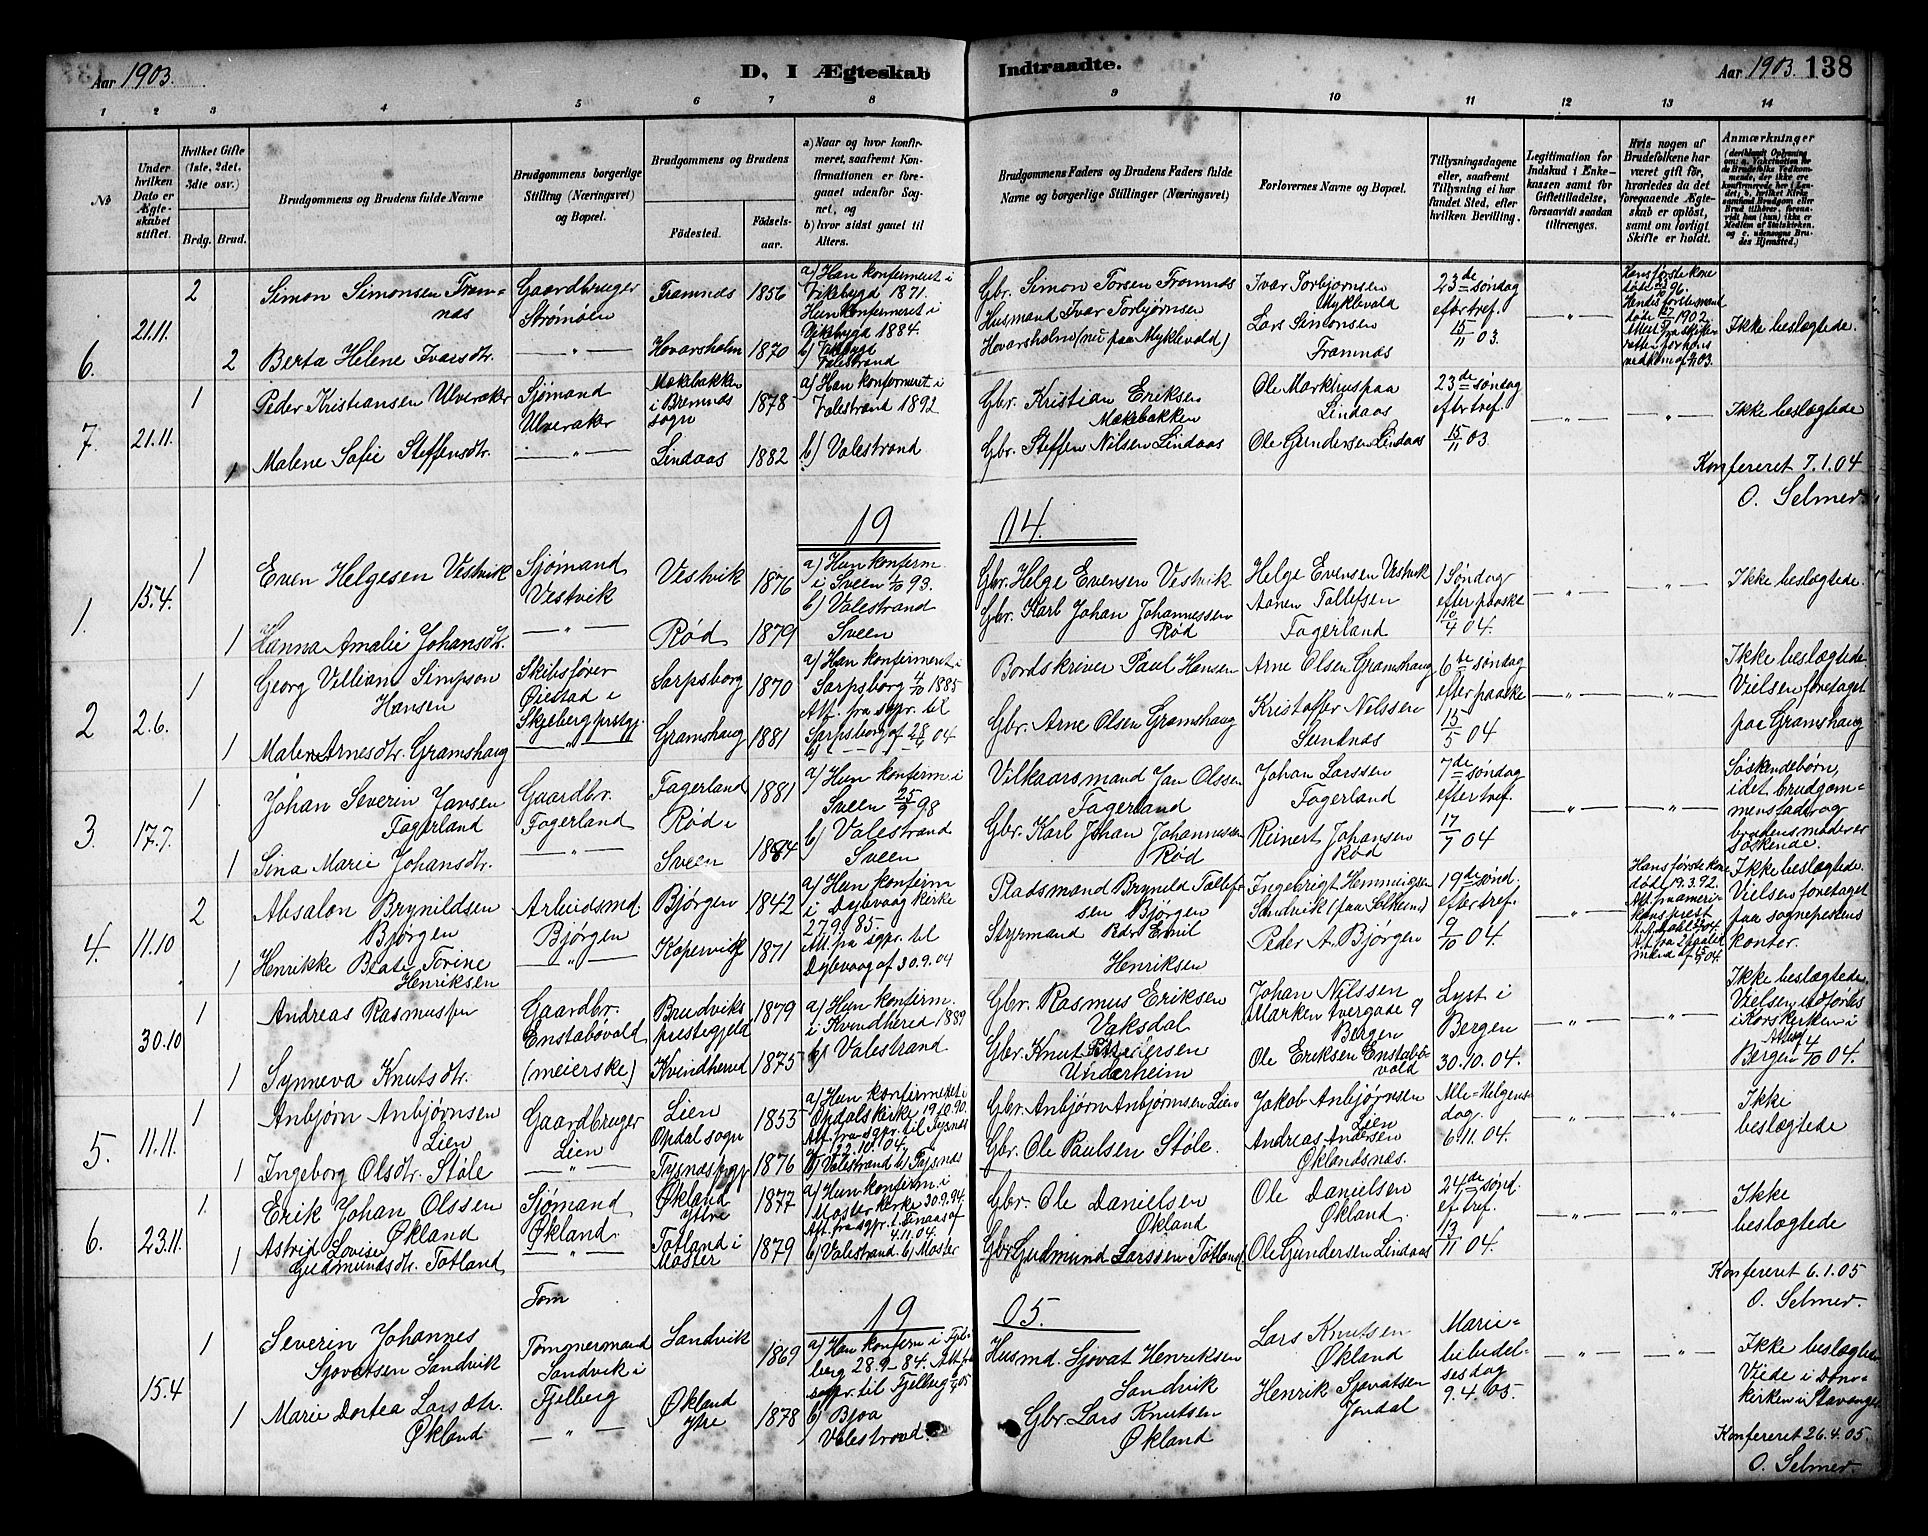 Aar 1903.
D, I Ægteskab Indtraadte.
Aar 1903. 138
1 2 3 4 5 6 7 8 9 10 11 12 13 14
No
Under hvilken Dato er Ægteskabet stiftet.
Hvilket Gifte (1ste, 2det, 3die osv.)
Brdg. Brud.
Brudgommens og Brudens fulde Navne
Brudgommens borgerlige Stilling (Næringsvei) og Bopæl.
Brudgommens og Brudens
Fødested.
Fødselsaar.
a) Naar og hvor konfirmeret, saafremt Konfirmationen er foregaaet udenfor Sognet, og
b) hvor sidst gaaet til Alters.
Brudgommens Faders og Brudens Faders fulde Navne og borgerlige Stillinger (Næringsvei)
Forlovernes Navne og Bopæl.
Tillysningsdagene eller, saafremt Tillysning ei har fundet Sted, efter hvilken Bevilling.
Legitimation for Indskud i Enkekassen samt for Giftetilladelse, forsaavidt saadan tiltrænges.
Hvis nogen af Brudefolkene har været gift før, hvorledes da det foregaaende Ægteskab er opløst, samt om lovligt Skifte er holdt.
Anmærkninger
6. 21.11. 2
Simon Simonsen Framnæs
Gaardbruger Strømøen
Framnæs 1856
a) Han konfirmeret i Vikebygd 1871. Hun konfirmeret i Vikebygd 1884.
b) Vikebygd Valestrand
Gbr. Simon Torsen Framnæs
Husmand Ivar Torbjørnsen Hovarsholm (nu paa Myklevold)
Ivar Torbjørnsen Myklevold
Lars Simonsen Framnæs
23de søndag efter tref. 15/11 03.
— " —
Hans første kone døde 96. Hendes første mand døde 1902.
Ikke beslægtede.
2 Berta Helene Ivarsdtr. — " — Hovarsholm 1870
7. 21.11. 1
Peder Kristiansen Ulveraker
Sjømand Ulveraker
Møkebakken i Bremnæs sogn 1878
a) Han konfirmeret i Valestrand 1892
b) Valestrand
Gbr. Kristian Eriksen Møkebakken
Gbr. Steffen Nilsen Lindaas
Ole Markhus paa Lindaas
Ole Gundersen Lindaas
23de søndag efter tref. 15/11 03.
— " — — " —
Ikke beslægtede
1 Malene Sofie Steffensdtr. — " — Lindaas 1882
Konfereret 7.1.04
O. Selmer.
1904.
1. 15.4. 1
Even Helgesen Vestvik
Sjømand Vestvik
Vestvik 1876
a) Hun konfirm i Sveen 1/10 93.
b) Valestrand Sveen
Gbr. Helge Evensen Vestvik
Gbr. Karl Johan Johannessen Rød
Helge Evensen Vestvik
Aanen Tollefsen Fagerland
1 Søndag efter paaske 10/4 04.
— " — — " —
Ikke beslægtede.
1 Hanna Amalie Johansdtr. — " — Rød 1879
2 2.6. 1
Georg Villiam Simpson Hansen
Skibsfører Øiestad i Skjeberg prstgj.
Sarpsborg 1870
a) Han konfirmeret i Sarpsborg 4/10 1885 Att. fra sgpr. til Sarpsborg af 28/4 04
Bordskriver Paul Hansen
Gbr. Arne Olsen Gramshaug
Arne Olsen Gramshaug
Kristoffer Nilssen Sundnæs
6te søndag efter paaske 15/5 04
— " — — " —
Ikke beslægtede Vielsen foretaget paa Gramshaug
1 Malene Arnesdtr. Gramshaug — " — Gramshaug 1881
3. 17.7. 1
Johan Severin Jansen Fagerland
Gaardbr. Fagerland
Fagerland 1881
a) Hun konfirm. i Sveen 25/9 98
b) Valestrand Sveen
Vilkaarsmand Jan Olssen Fagerland
Gbr. Karl Johan Johannessen Rød
Johan Larssen Fagerland
Reinert Johansen Rød
7de søndag efter tref. 17/7 04
— " — — " —
Søskendebørn, idet brudgommens fader og brudens moder er søskende.
1 Sina Marie Johansdtr. — " — Rød i Sveen 1884
4. 11.10 2
Absalon Brynildsen Bjørgen
Arbeidsmd. Bjørgen
Bjørgen 1842
a) Hun konfirm i Dybvaag kirke 27.9.85. Att. fra sgpr. til Dybvaag af 30.9.04
Pladsmand Brynild Tollefsen Bjørgen
Styrmand Peder Emil Henriksen
Ingebrigt Hemmigsen Sandvik (paa Selheim)
Peder A. Bjørgen
19de sønd. efter tref. 9/10 04.
— " —
Hans første kone døde 19.3.92. Att. fra amerikansk prest
Ikke beslægtede. Vielsen foretaget paa sogneprestens kontor.
1 Henrikke Beate Torine Henriksen — " — Kopervik 1871
30.10 1
Andreas Rasmussen
Gaardbr. Enstabøvold (meierske)
Brudviks prestegjeld 1879
a) Hun konfirm. i Kvindherred 1889
b) Valestrand
Gbr. Rasmus Eriksen Vaksdal
Gbr. Knut Pedersen Underheim
Johan Nilssen Marken tvergade 9 Bergen
Ole Eriksen Enstabøvold
Lyst i Bergen 30.10.04.
— " — — " —
Ikke beslægtede. Vielsen udførtes i Korskirken i Bergen Attest 4/10 04.
1 Synneva Knutsdtr. Kvindherred 1875
5. 11.11. 1
Anbjørn Anbjørnsen Lien
Gaardbruger Lien
Lien Opdal sogn 1853
a) Hun konfirmeret i Opdals kirke 19.10.90. Att. fra sgpr. til Tysnes 22.10.04.
b) Valestrand b) Tysnes
Gbr. Anbjørn Anbjørnsen Lien
Gbr. Ole Paulsen Støle.
Jakob Anbjørnsen Lien
Andreas Andersen Øklandsnæs.
Alle-Helgensdag. 6.11.04.
— " — — " —
Ikke beslægtede
1 Ingeborg Olsdtr. Støle — " — Tysnæs pgj 1876
6. 23.11. 1.
Erik Johan Olssen Økland
Sjømand Økland.
Økland Ytre 1877
a) Hun konfirm. i Moster kirke 30.9.94. Att. fra sgpr. t. Finaas af 4.11.04.
b) Valestrand. b) Moster
Gbr. Ole Danielsen Økland
Gbr. Gudmund Larssen Totland
Ole Danielsen Økland.
Ole Gundersen Lindaas
24de sønd. ef tref. 13/11 04.
— " — — " —
Ikke beslægtede
1 Astrid Lovise Gudmundsdtr. Totland — " — Totland i Moster 1879
Konfereret 6.1.05
O. Selmer.
1905.
Tom
15.4 1
Severin Johannes Sjovatsen Sandvik
Tømmermand Sandvik i Fjelberg
Sandvik 1869
a) Han konfirm i Fjelberg 28.9-84. Att. fra sogpr. til Fjelberg
b) Bjoa Valestrand.
Husmd. Sjovat Henriksen Sandvik
Gbr. Lars Knutsen Økland
Lars Knutsen Økland
Henrik Sjovatsen Jondal
Mariebebudelsesdag 9.4.05.
— " — — " —
Ikke beslægtede Viede i Domkirken i Stavanger
1 Marie Dortea Larsdtr. Økland — " — Økland Ytre 1878
Konfereret 26.4.05.
O. Selmer.